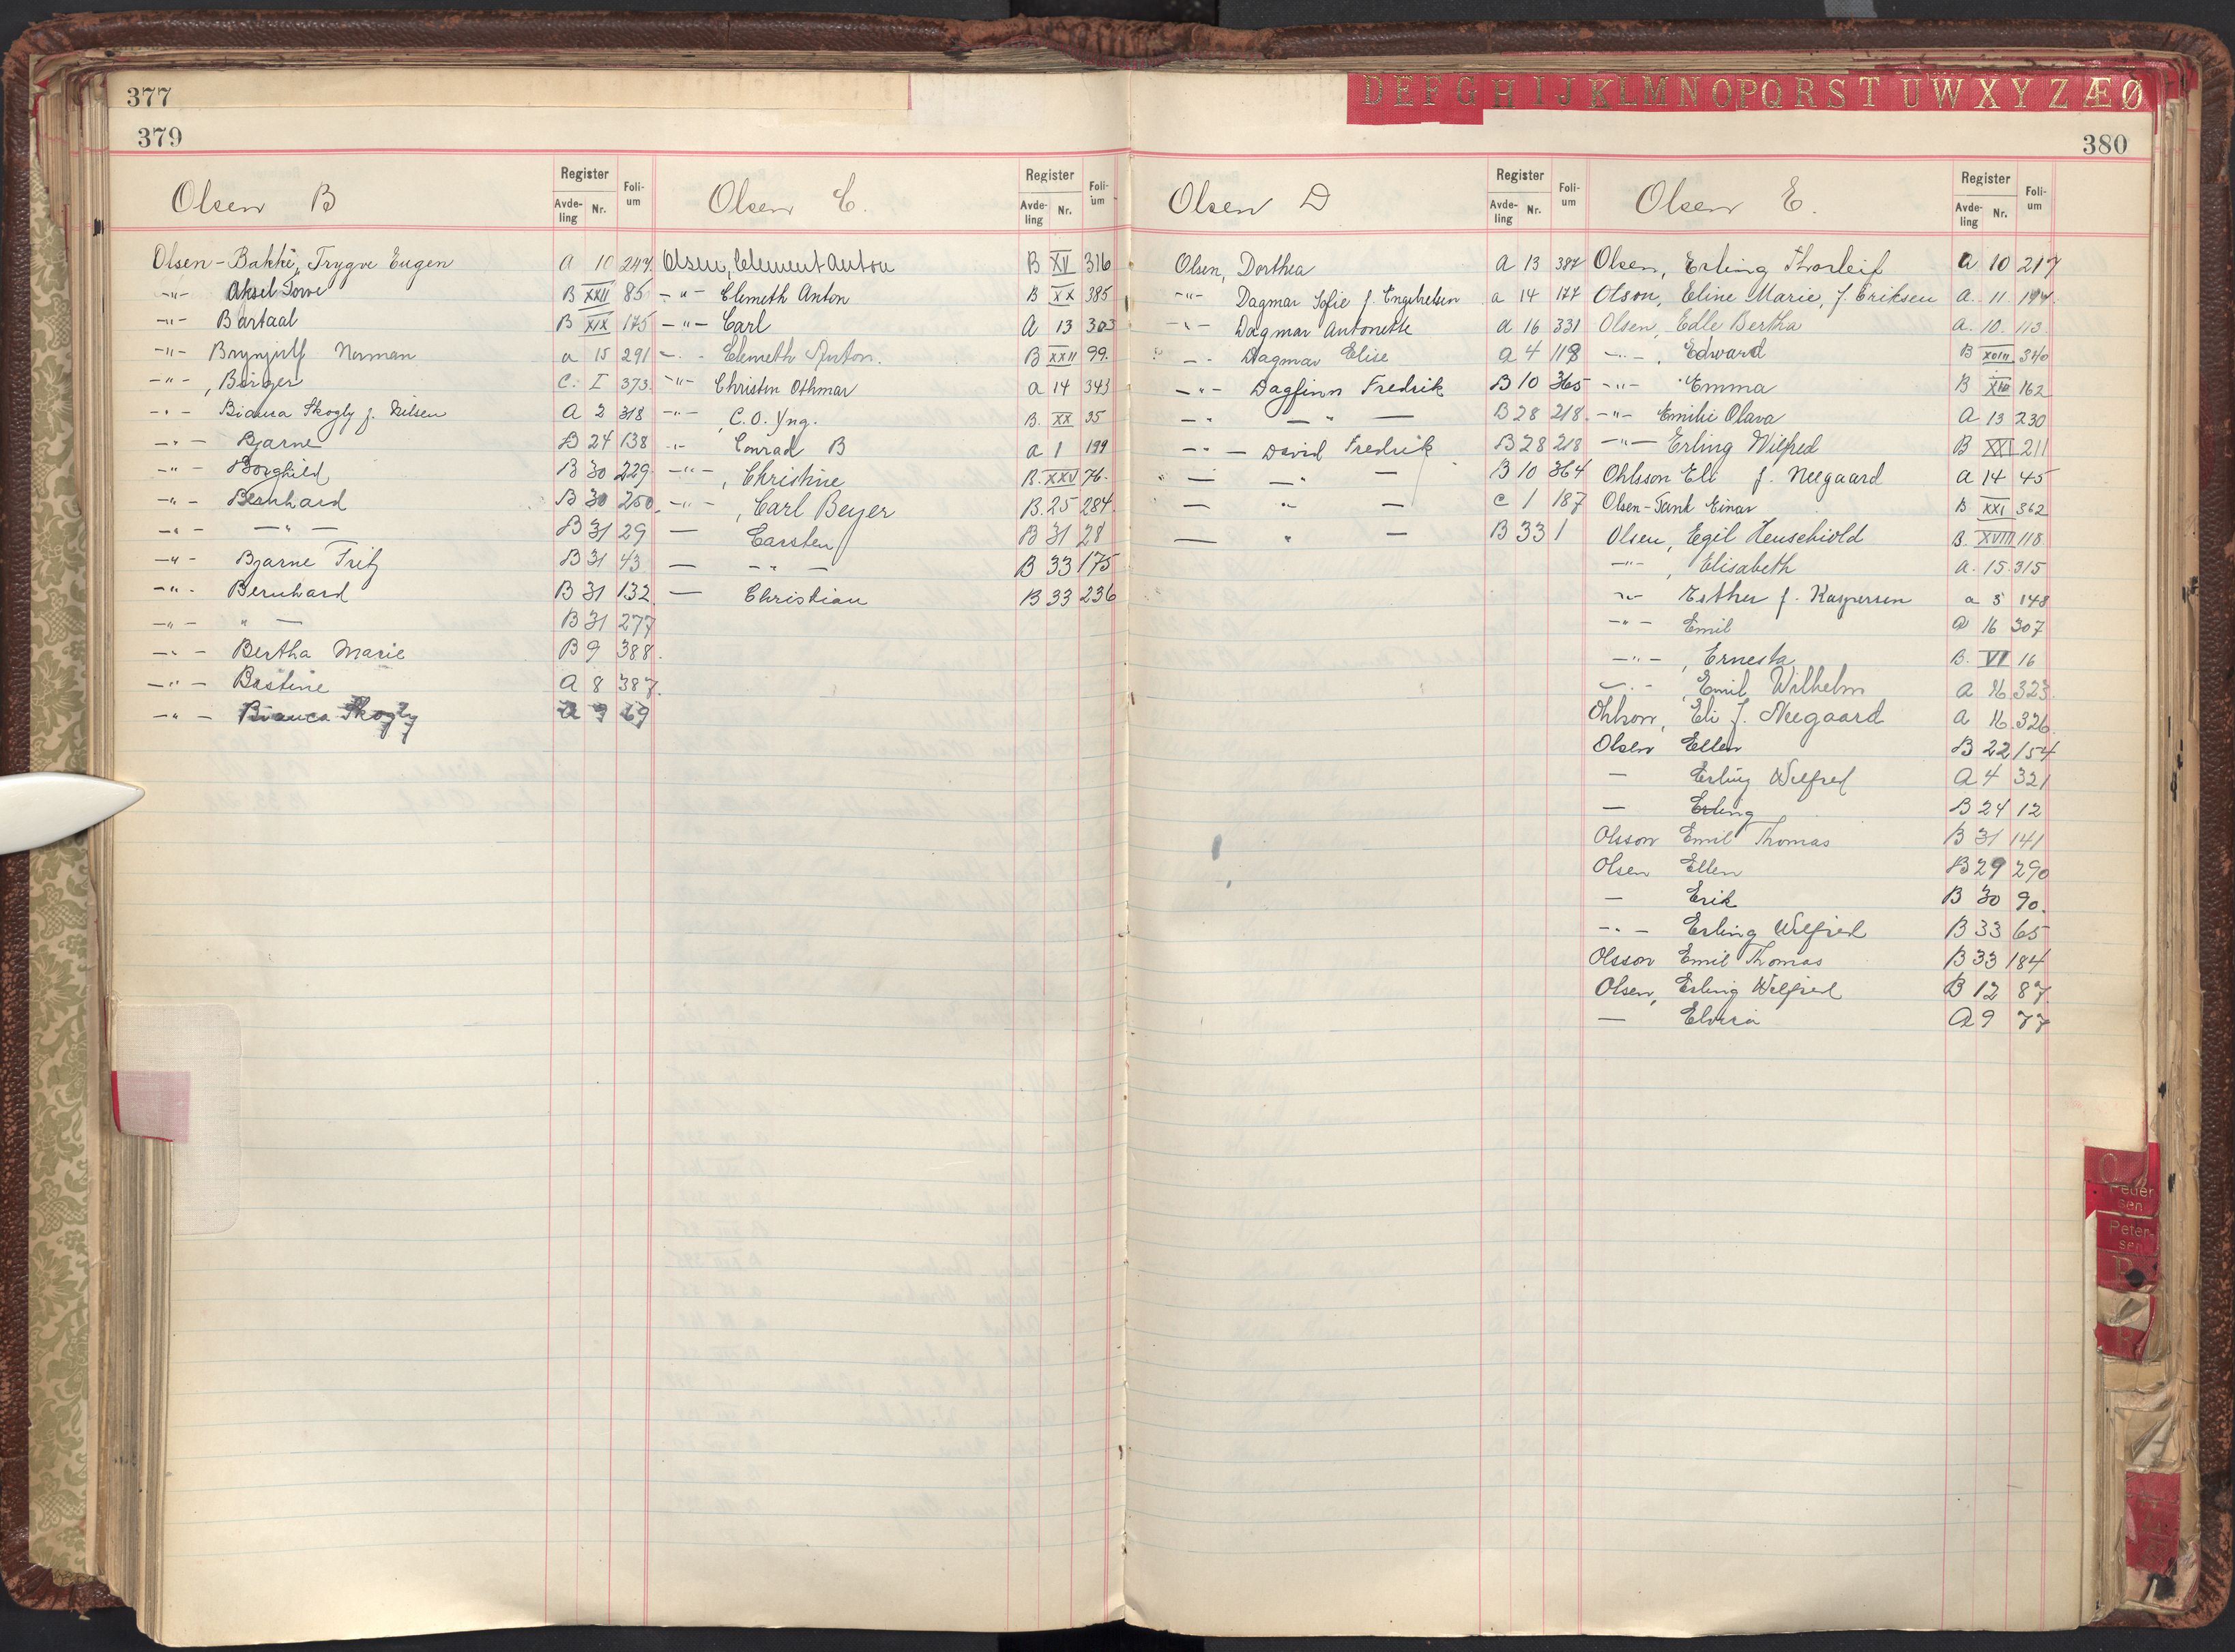 377
379
Olsen B
Register
Avde-ling Nr.
Foli-um
Olsen-Bakke, Trygve Eugen A 10 247.
-"- Aksel Torve B XXII 85
-"- Bartaal B XIX 175
-"- Brynjulf Norman a 15 291
-"- , Birger C. I 373.
-"- Bianca Skogly f. Nilsen A 2 318
-"- Bjarne B 24 138
-"- Borghild B 30 229
-"- Bernhard B 30 250.
-"- -"- B 31 29
-"- Bjarne Fritz B 31 43
-"- Bernhard B 31 132.
-"- " - B 31 277
-"- Bertha Marie B 9 388.
-"- Bastine A 8 387.
-"- Bianca Skogly A 9 69
Olsen C.
Register
Avde-ling Nr.
Foli-um
Olsen, Clement Anton B XV 316
-"- Clemeth Anton B XX 385
-"- Carl A 13 303
-"- Clemeth Anton. B XXII 99.
-"- Christen Othmar a 14 343
-"- , C.O. Yng. B. XX 35
-"- Conrad B a 1 199
-"- , Christine B. XXV 76.
-"- , Carl Beyer B. 25 284.
— Carsten B 31 28
— -"- B 33 175
— Christian B 33 236
DEFGHIJKLMNOPQRSTUWXYZÆØ
380
Olsen D
Register
Avde-ling Nr.
Foli-um
Olsen, Dorthea A 13 387
-"- Dagmar Sofie f. Engebretsen a 14 177
-"- Dagmar Antonette a 16 331
-"- Dagmar Elise a 4 118
-"- Dagfinn Fredrik B 10 365
-"- " — B 28 218.
-"- David Fredrik B 28 218
— -"- — B 10 364
— " — C 1 187
— " — B 33 1
Olsen E.
Register
Avde-ling Nr.
Foli-um
Olsen, Erling Thorleif A 10 217
Olson, Eline Marie, f. Eriksen A. 11. 194.
Olsen, Edle Bertha A. 10. 113.
-"- , Edward B XVIII 340
-"- Emma B XIII 162
-"- Emilie Olava A 13 230
-"- Erling Wilfred B XXI 211
Ohlsson Eli f. Neegaard A 14 45
Olsen-Tank Einar B XXI 362
Olsen, Egil Henschiold B. XVIII 118
-"- , Elisabeth A. 15. 315
-"- Esther f. Kaspersen a 5 148
-"- Emil A 16 307
-"- , Ernesta B. VI 16
-"- , Emil Wilhelm A 16 323.
Ohlson, Eli f. Neegaard A 16. 326.
Olsen Ellen B 22 154
— Erling Wilfred A 4 321
— Erling B 24 12
Olsson Emil Thomas B 31 141
Olsen Ellen B 29 290
— Erik B 30 90.
-"- Erling Wilfred B 33 65
Olsson Emil Thomas B 33 184
Olsen, Erling Wilfred B 12 87.
— Elvira A 9 77
Peder
sen
Peter-
sen
P
R